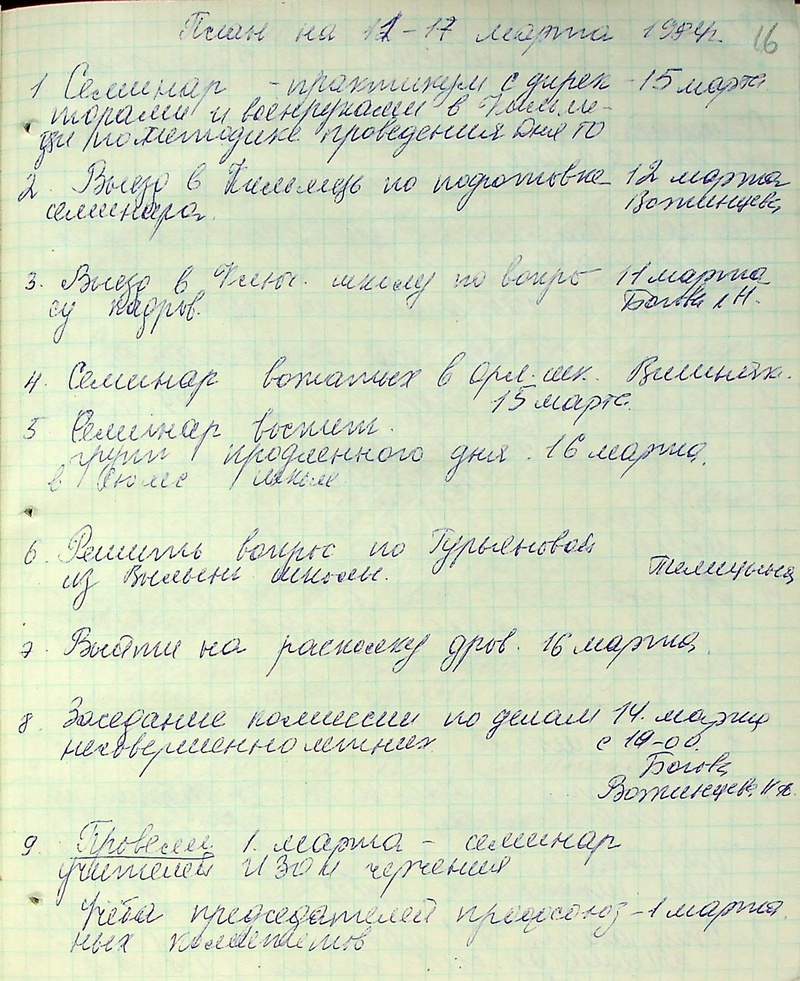 План на 12-17 марта 1984г. 16
1 Семинар - практикум с дирек - 15 марта
торами и военруками в
по методике проведения Дня ГО
2. Выезд в по подготовке 12 марта
семинара. Вожинцева
3. Выезд в школу по вопро 11 марта
су кадров. Богова
4. Семинар вожатых в шк.
15 марта.
5 Семинар воспит.
групп продленного дня. 16 марта.
в школе
6. Решить вопрос по Гурьяновой
из школы. Телицына
7. Выйти на расколку дров. 16 марта.
8. Заседание комиссии по делам 14. марта
несовершеннолетних с 19-00.
Богова
Вожинцева
9. Провели 1. марта - семинар
учителей ИЗО и черчения
Учёба председателей профсоюз - 1 марта.
ных комитетов